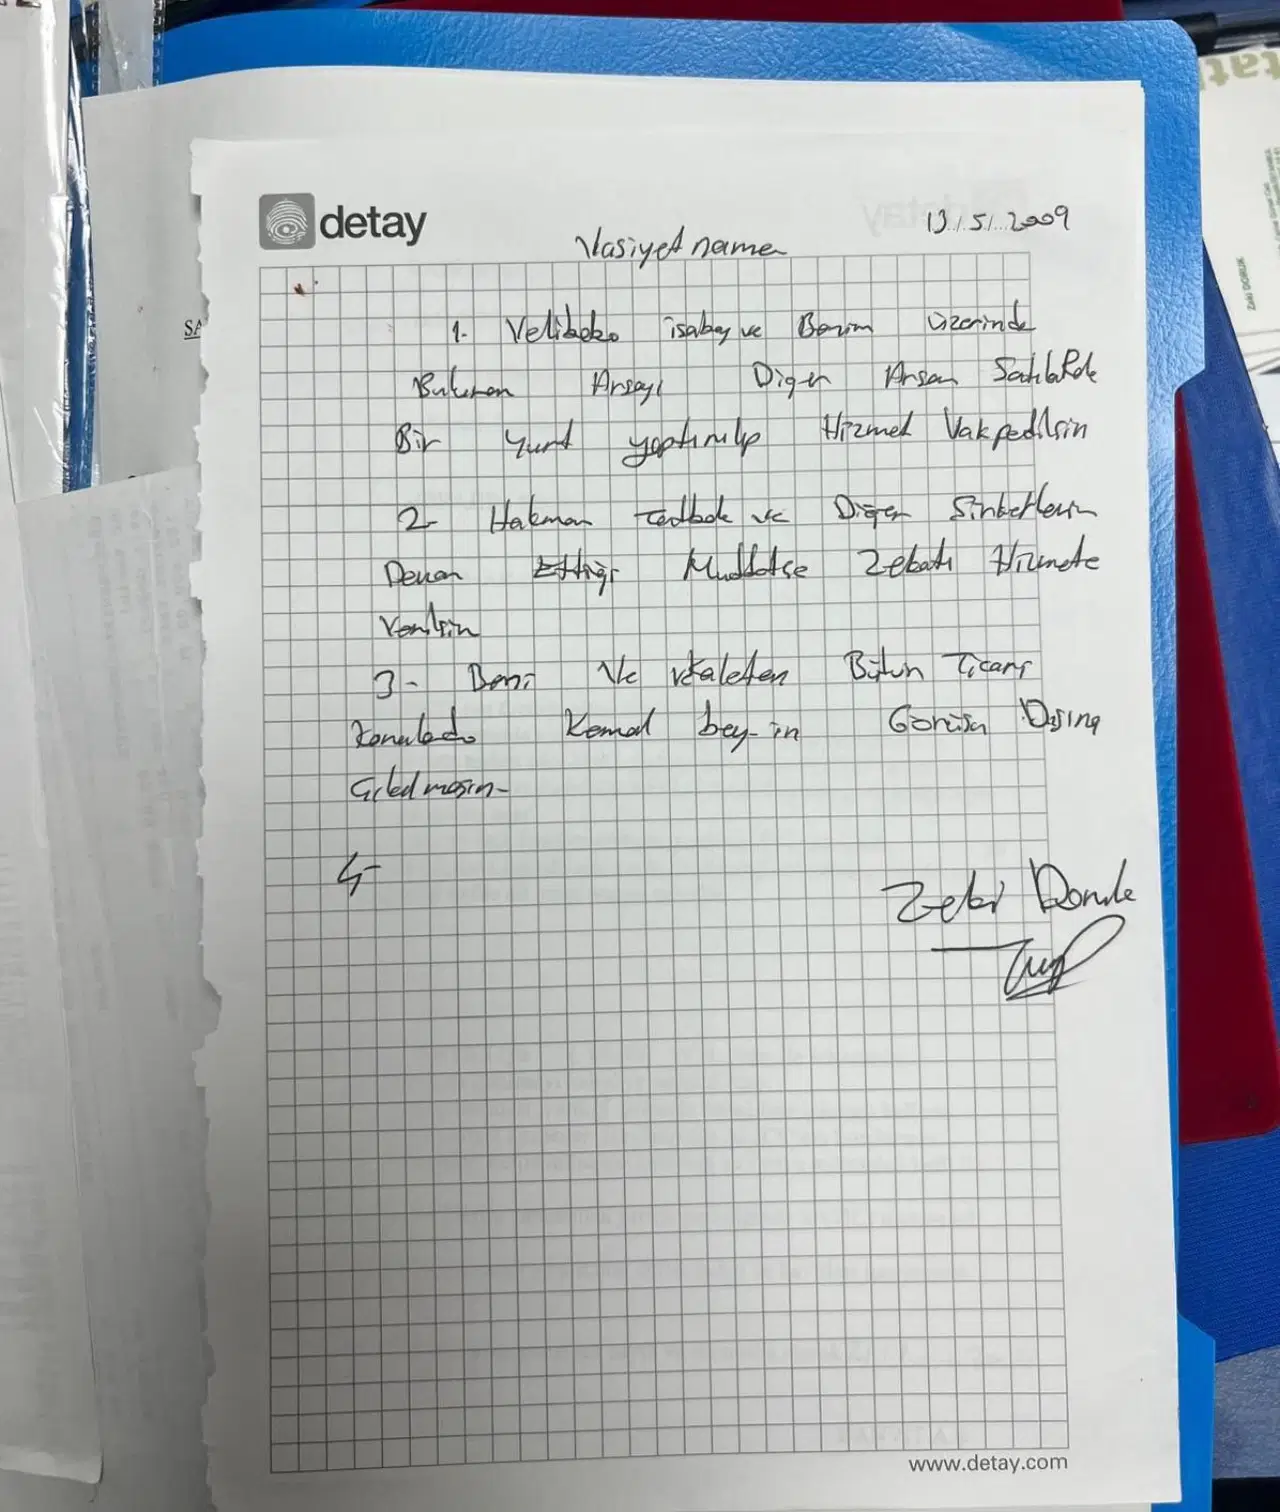 detay
13/5/2009
Vasiyetname
SA
1. Velibaba isabey ve Benim üzerinde
Bulunan Arsayı Diğer Arsam Satılıp
Bir Yurt yaptırılıp Hizmet Vakfedilsin
2- Hakman ve Diğer Şirketlerin
Devam Ettiği Müddetçe Zekatı Hizmete
Verilsin
3- Beni Ve vekaleten Bütün Ticari
Konularda Kemal bey-in Görüşü Dışına
Çıkılmasın-
4-
Zeki Doruk
www.detay.com
Zeki DORUK